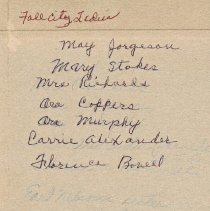 Fall City Ladies
May Jorgeson
Mary Stokes
Mrs Richards
Ora Coppers
Ora Murphy
Carrie Alexander
Florence Bowell